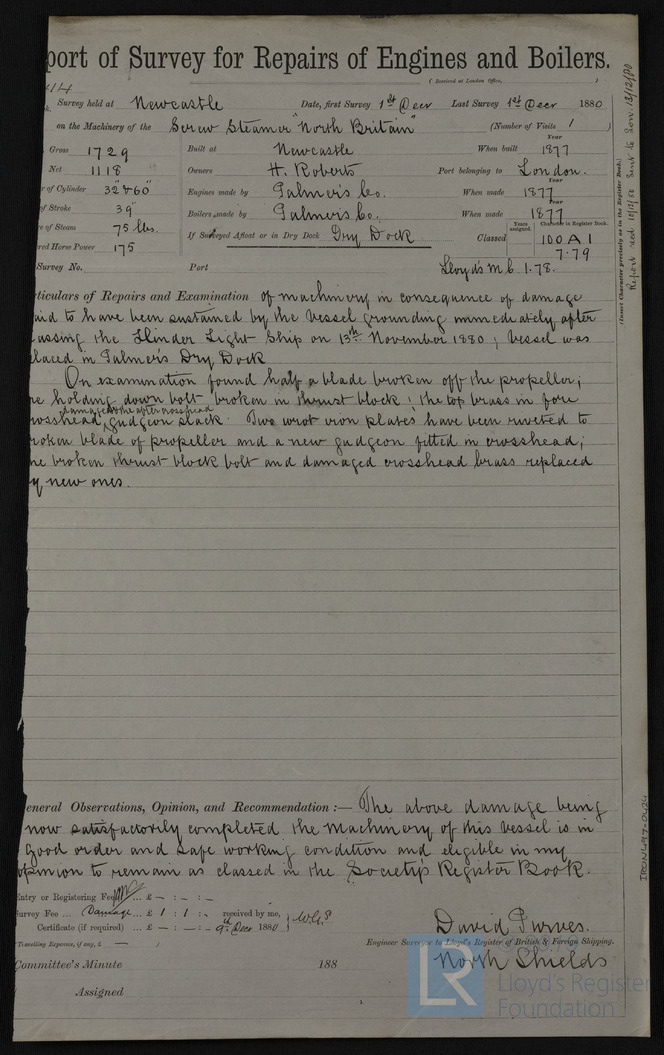 port of Survey for Repairs of Engines and Boilers.
(Received at London Office, )
Survey held at Newcastle Date, first Survey 1st Decr Last Survey 1st Decr 1880
on the Machinery of the Screw Steamer "North Britain" (Number of Visits 1 )
Gross 1729 Built at Newcastle When built Year 1877
Net 1118 Owners H. Roberts Port belonging to London.
r of Cylinder 32 & 60" Engines made by Palmer's Co. When made Year 1877
of Stroke 39" Boilers made by Palmer's Co. When made Year 1877
e of Steam 75 lbs. If Surveyed Afloat or in Dry Dock Dry Dock Classed Years assigned. Character in Register Book. 100 A 1
red Horse Power 175 7.79
Survey No. Port Lloyd's M.C. 1.78.
rticulars of Repairs and Examination of machinery in consequence of damage
aid to have been sustained by the vessel grounding immediately after
assing the Hinder Light Ship on 13th November 1880; vessel was
laced in Palmer's Dry Dock
On examination found half a blade broken off the propeller;
ne holding down bolt broken in thrust block; the top brass in fore
damaged & the after crosshead
rosshead gudgeon slack. Two wrot iron plates have been riveted to
roken blade of propeller and a new gudgeon fitted in crosshead;
he broken thrust block bolt and damaged crosshead brass replaced
y new ones.
eneral Observations, Opinion, and Recommendation :— The above damage being
now satisfactorily completed the machinery of this vessel is in
good order and safe working condition and eligible in my
opinion to remain as classed in the Society's Register Book.
Entry or Registering Fee £ – : – : –
Survey Fee ... Damage ... £ 1 : 1 : – received by me,
Certificate (if required) ... £ – : – : – 9th Decr 1880
Travelling Expenses, if any, £ —
David Purves.
Engineer Surveyor to Lloyd's Register of British & Foreign Shipping.
North Shields
Committee's Minute 188
Assigned
(Insert Character precisely as in the Register Book.)
IRON497-0424
LR
Lloyd's Register
Foundation